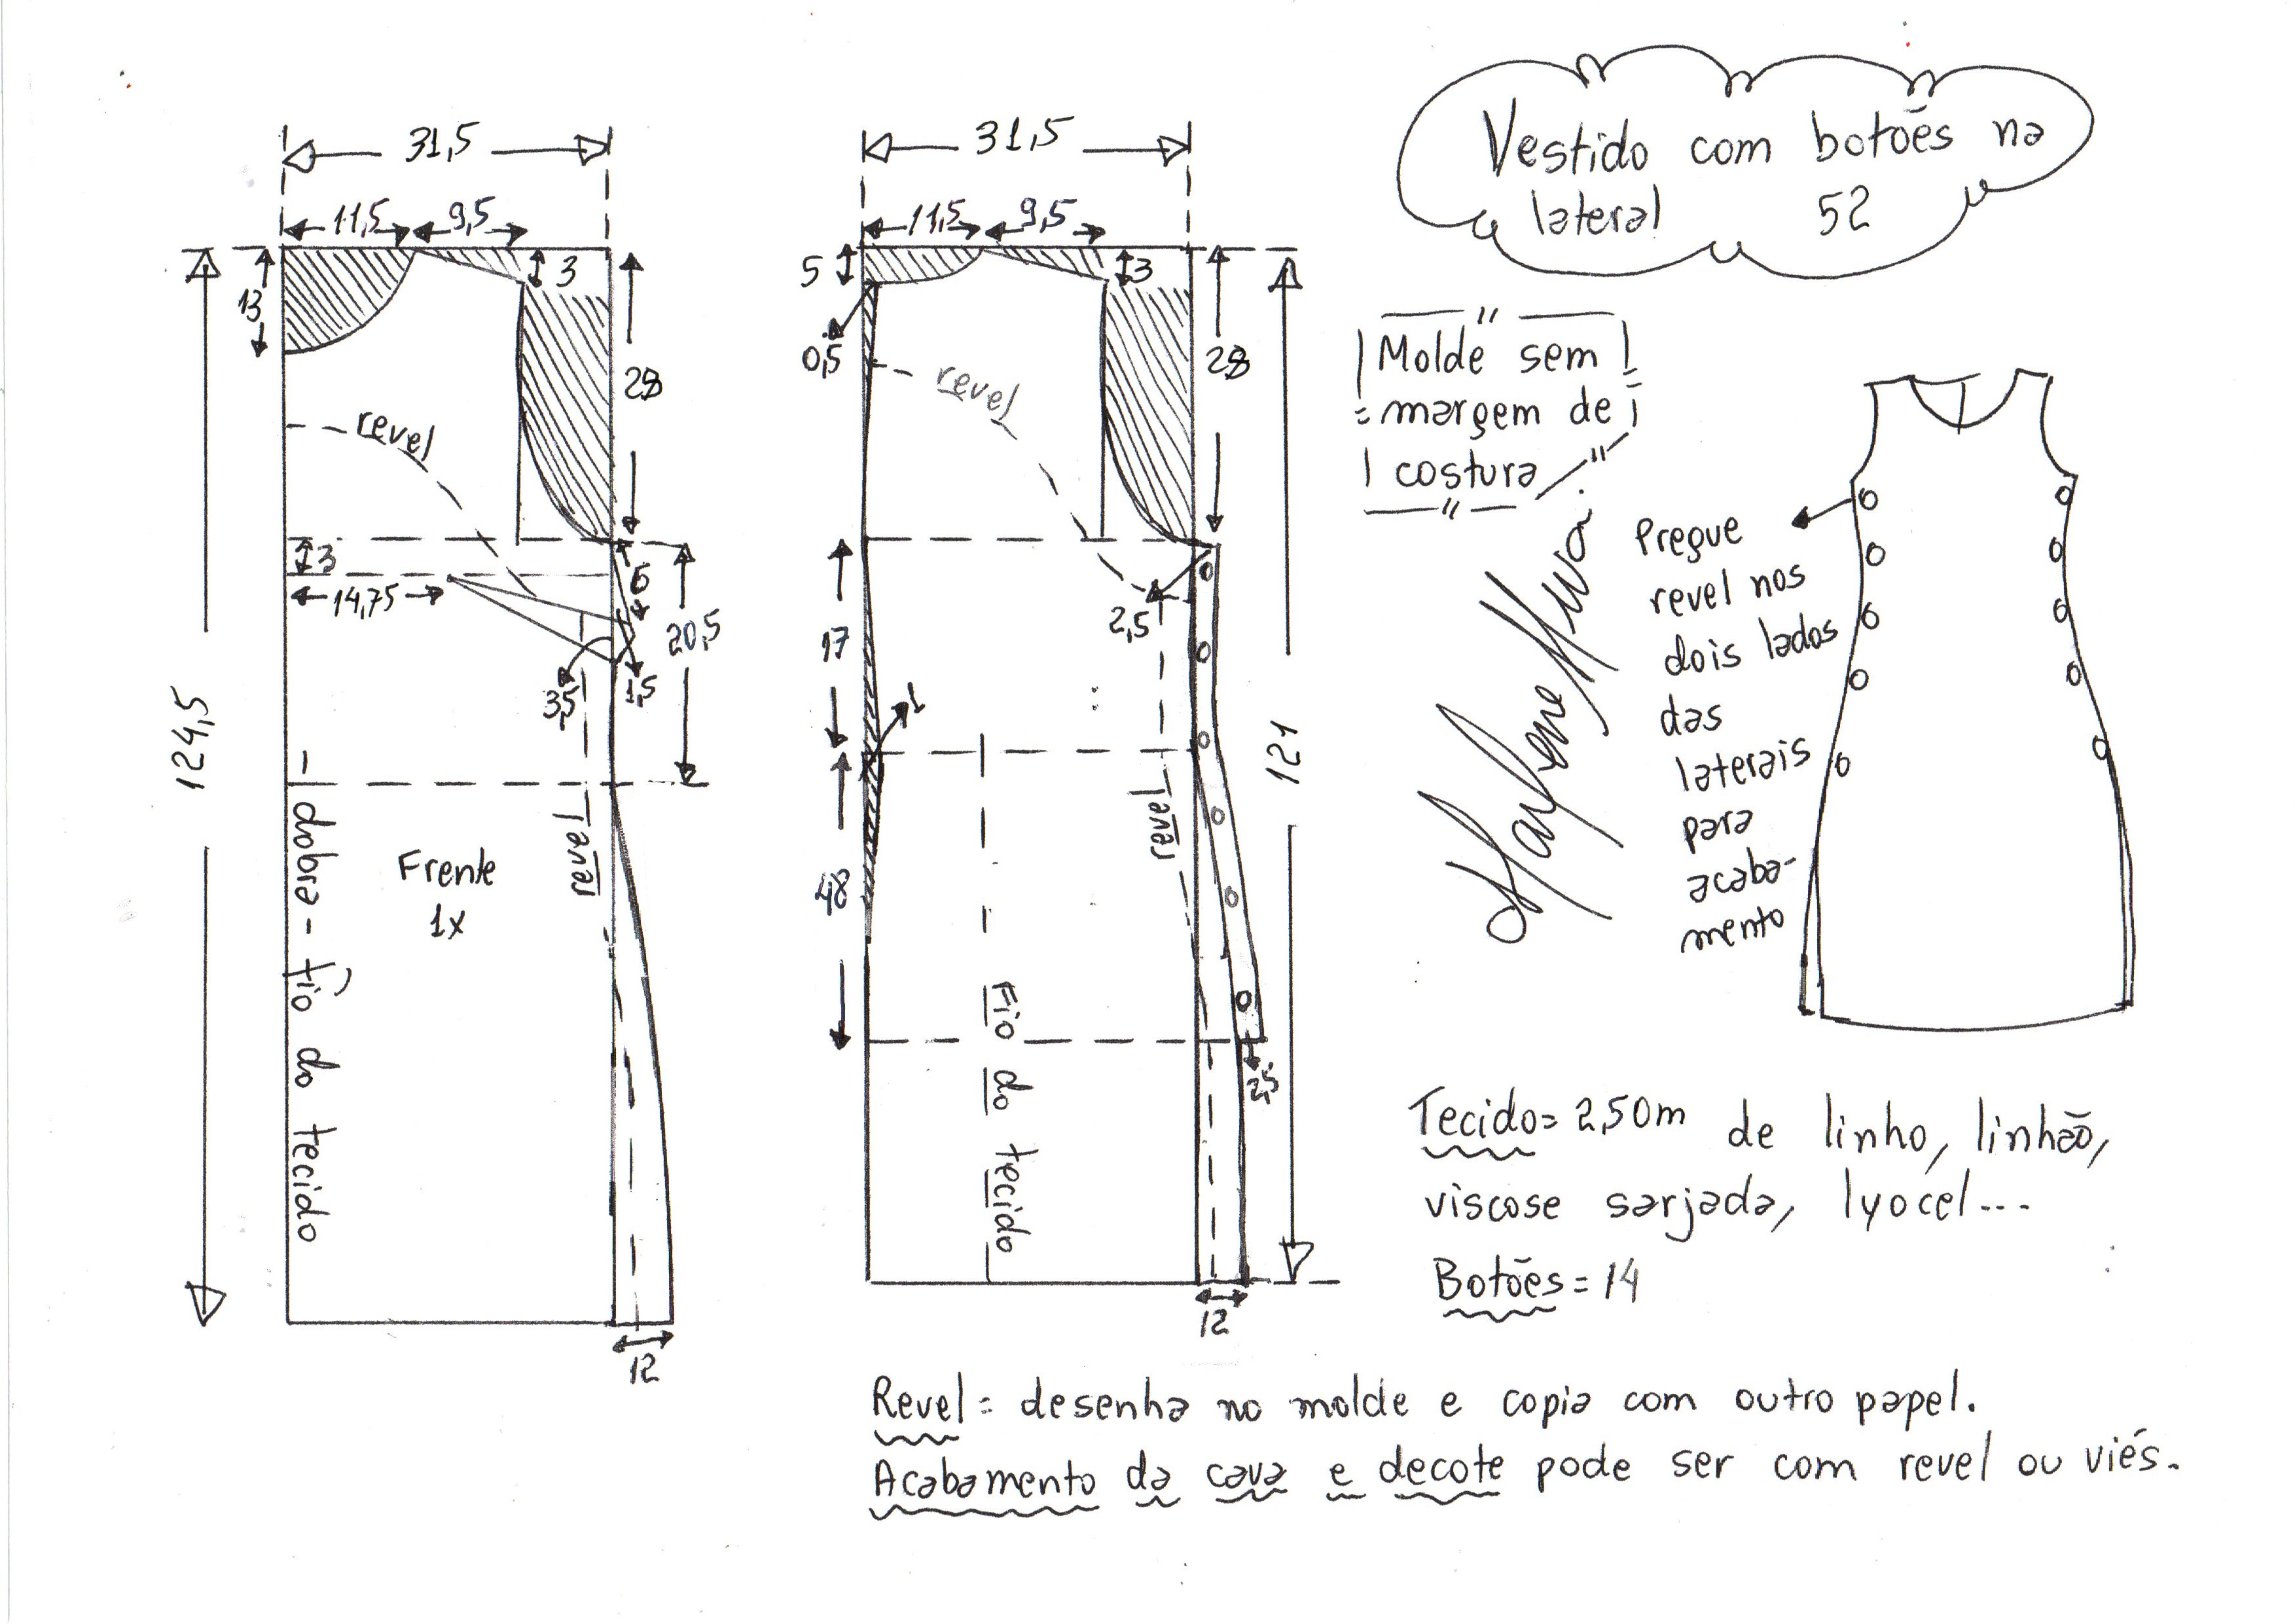 31,5
11,5
9,5
13
3
28
revel
3
14,75
6
20,5
3,5
1,5
124,5
revel
dobra - fio do tecido
Frente
1x
12
31,5
11,5
9,5
5
3
0,5
28
revel
2,5
17
1
48
121
revel
Fio do tecido
2,5
12
Vestido com botões na
lateral 52
Molde sem
margem de
costura
Marlene Mukai
Pregue
revel nos
dois lados
das
laterais
para
acaba-
mento
Tecido= 2,50m de linho, linhão,
viscose sarjada, lyocel...
Botões = 14
Revel = desenha no molde e copia com outro papel.
Acabamento da cava e decote pode ser com revel ou viés.